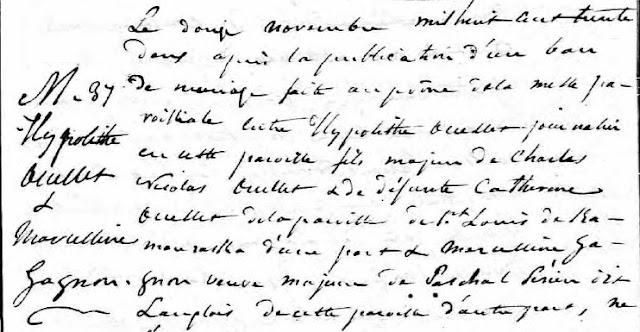 Le douze novembre mil huit cent trente
deux après la publication d'un ban
M. 37
de mariage fait au prône de la messe pa-
Hypolithe
roissiale entre Hypolithe Ouellet journalier
Ouellet
en cette paroisse fils majeur de Charles
&
Nicolas Ouellet & de défunte Catherine
Marcelline
Ouellet de la paroisse de St. Louis de Ka-
Gagnon
mouraska d'une part & Marcelline Ga-
gnon veuve majeure de Paschal dit
Langlois de cette paroisse d'autre part, ne